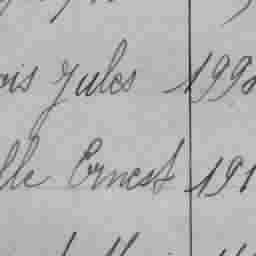 ois Jules 1992
lle Ernest 191